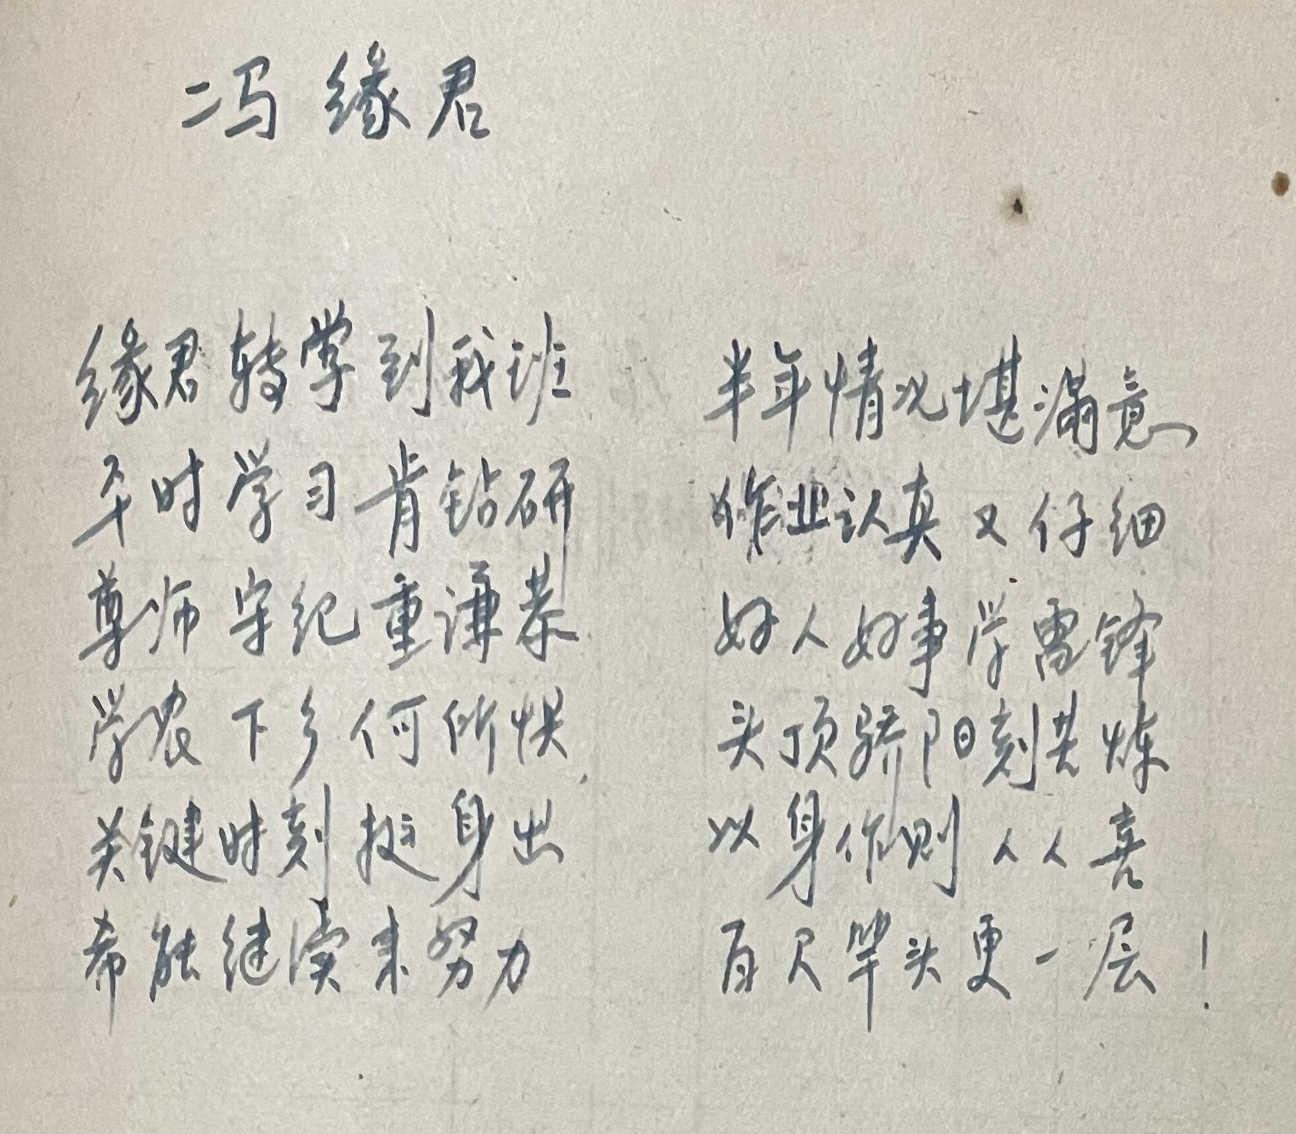 冯缘君
缘君转学到我班 半年情况堪满意
平时学习肯钻研 作业认真又仔细
尊师守纪重谦恭 好人好事学雷锋
学农下乡何所惧 头顶骄阳刻苦炼
关键时刻挺身出 以身作则人人喜
希能继续来努力 百尺竿头更一层!